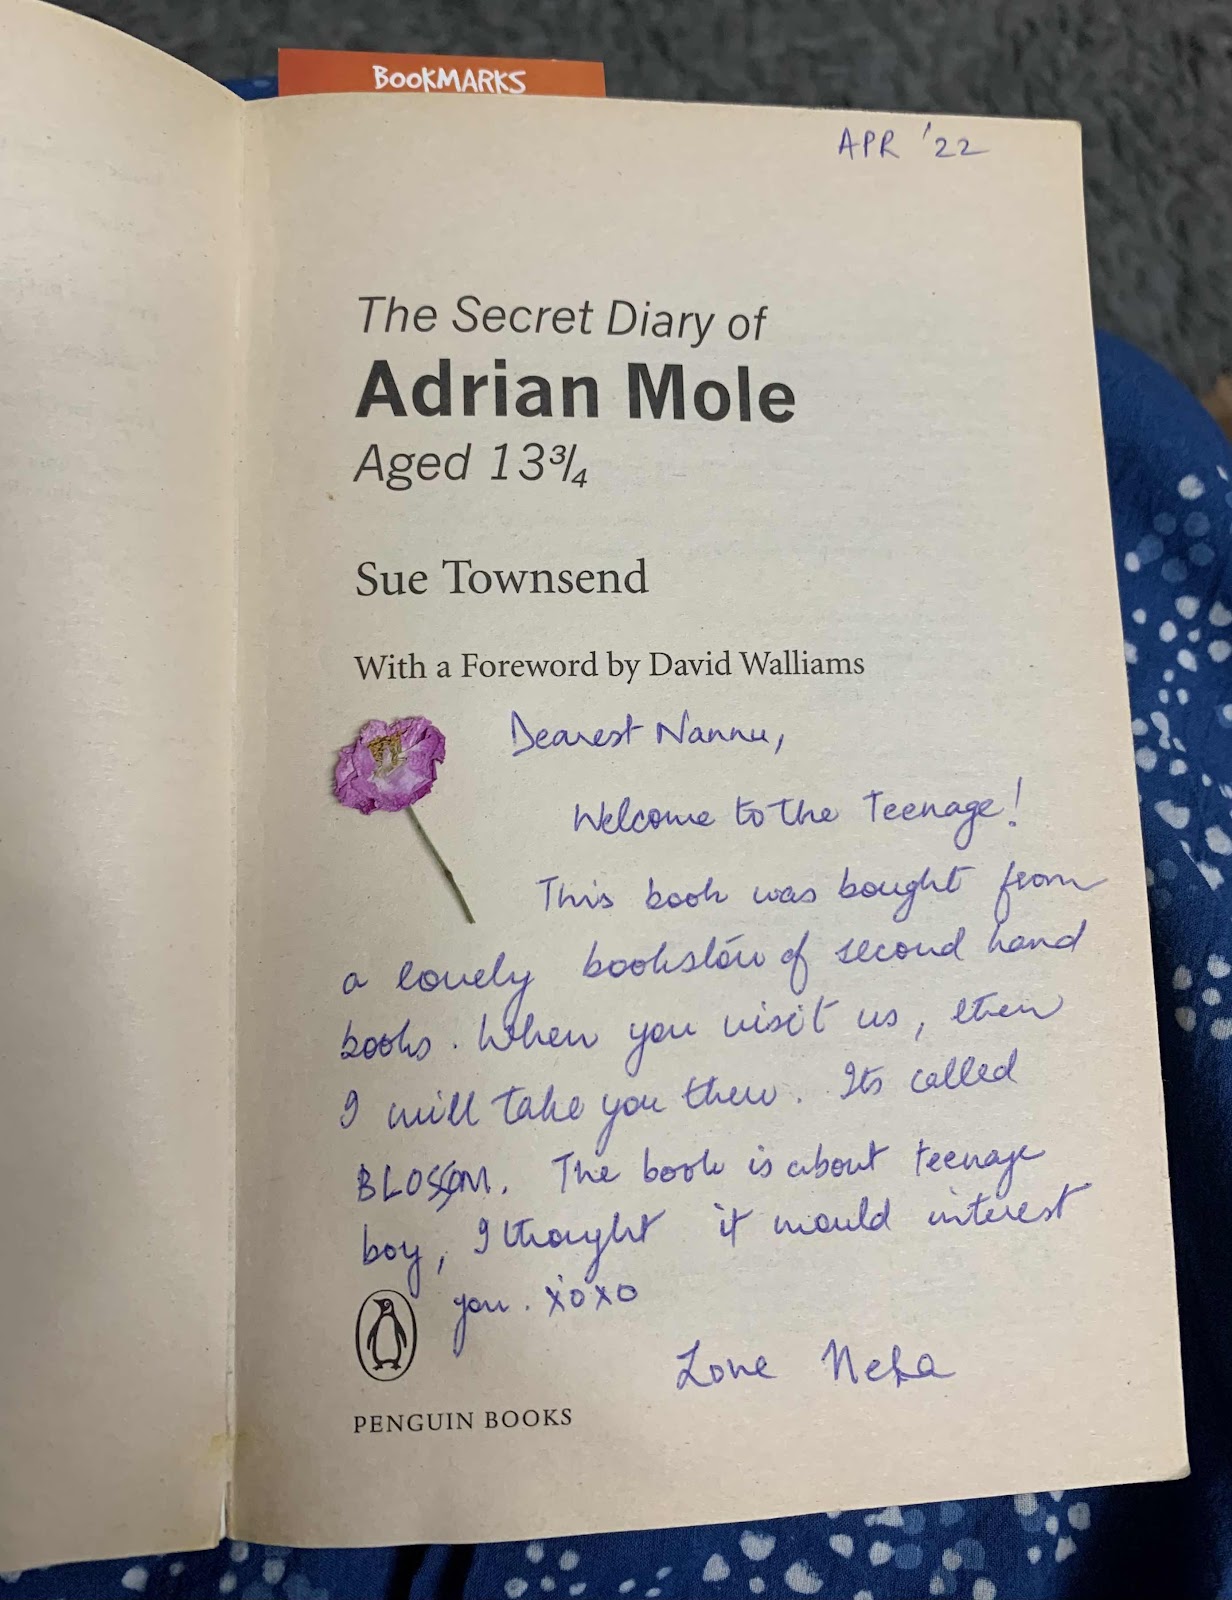 BOOKMARKS
APR '22
The Secret Diary of
Adrian Mole
Aged 13¾
Sue Townsend
With a Foreword by David Walliams
Dearest Nannu,
Welcome to the Teenage!
This book was bought from
a lovely bookstore of second hand
books. When you visit us, then
I will take you there. Its called
BLOSSOM. The book is about teenage
boy, I thought it would interest
you. xoxo
Love Neha
PENGUIN BOOKS